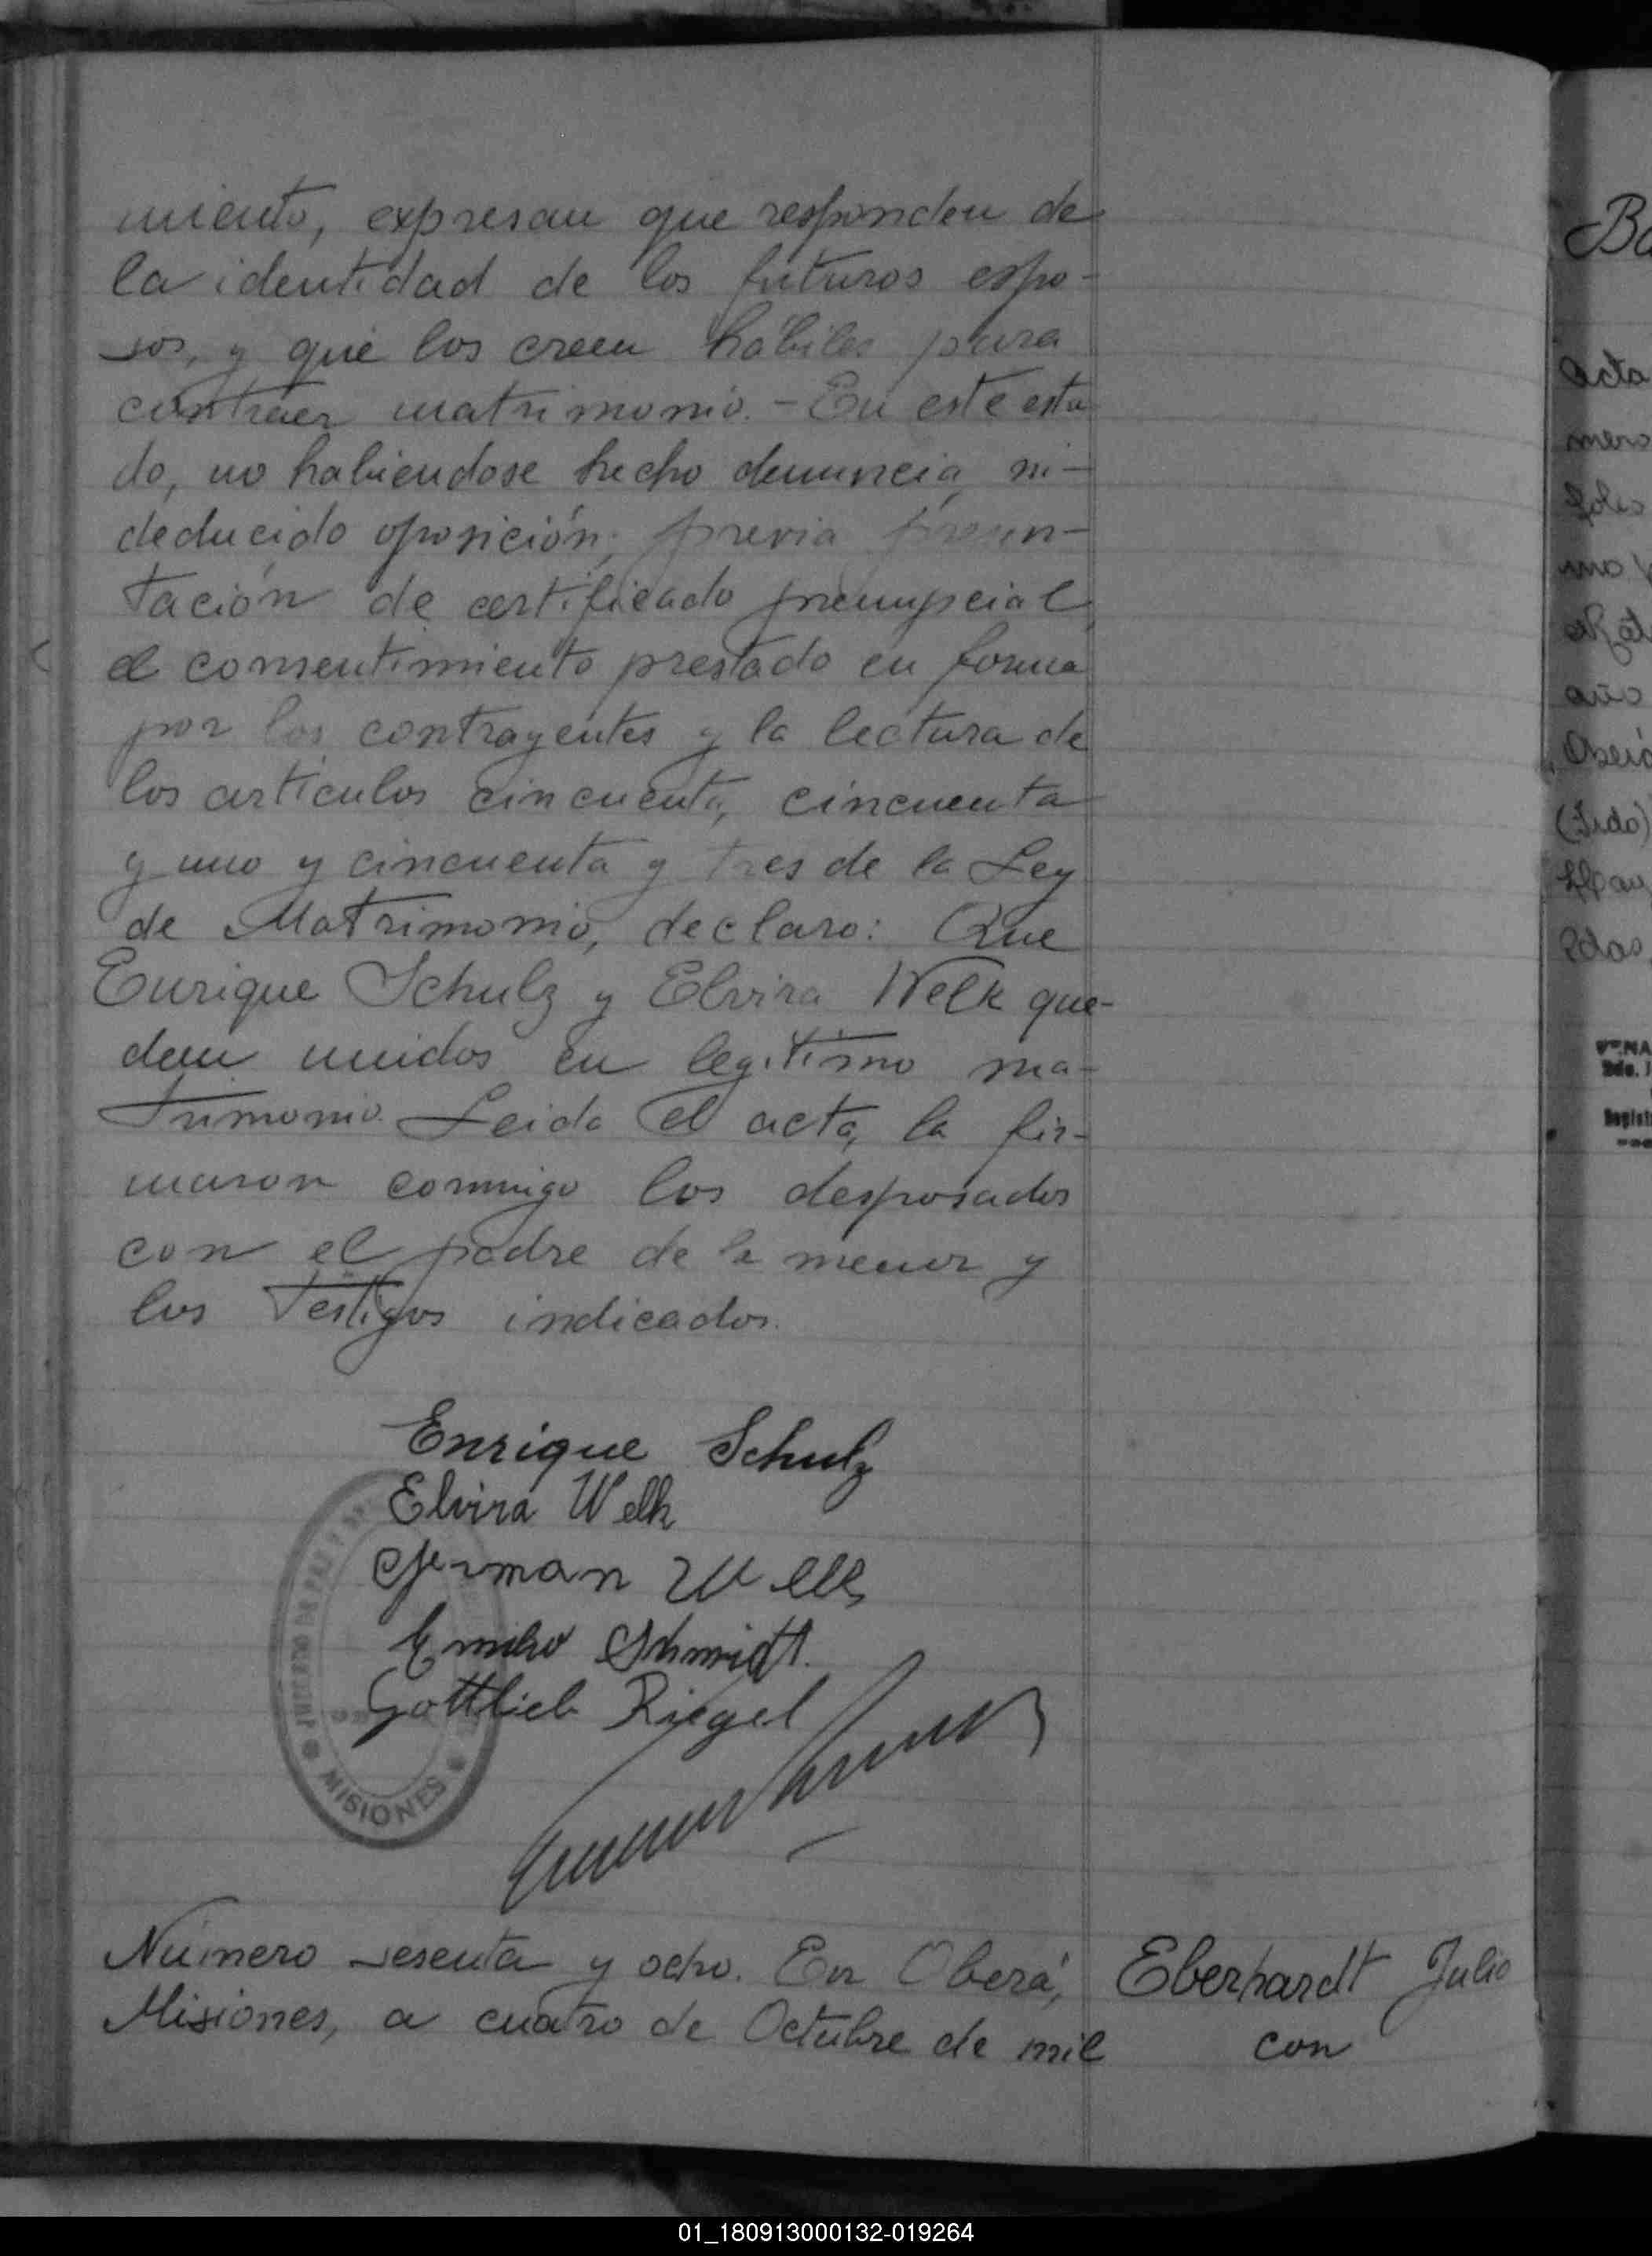 miento, expresan que responden de
la identidad de los futuros espo-
sos, y que los creen hábiles para
contraer matrimonio. - En este esta
do, no habiendose hecho denuncia, ni-
deducido oposición, previa presen-
tación de certificado prenupcial,
el consentimiento prestado en forma
por los contrayentes y la lectura de
los artículos cincuenta, cincuenta
y uno y cincuenta y tres de la Ley
de Matrimonio, declaro: Que
Enrique Schulz y Elvira Welk que-
dan unidos en legitimo ma-
trimonio. Leida el acta, la fir-
maron conmigo los desposados
con el padre de la menor y
los Testigos indicados.
Enrique Schulz
Elvira Welk
German Welk
Emilio Schmidt.
Gottlieb Riegel
JUZGADO DE PAZ
MISIONES
Número sesenta y ocho. En Oberá,
Misiones, a cuatro de Octubre de mil
Eberhardt Julio
con
Ba
acta
mero
folio
uno
año
(Fdo)
Fdos.
01_180913000132-019264